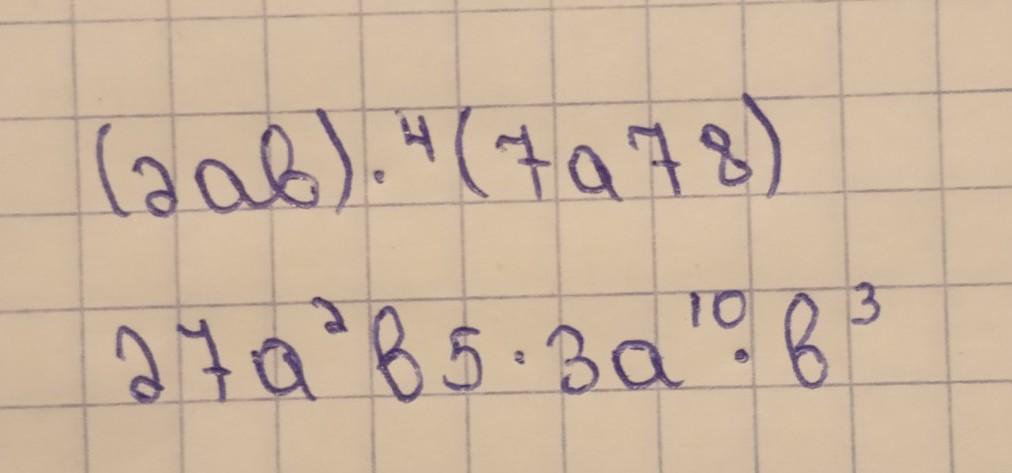 (2ab)·⁴(7a78)
27a²b5·3a¹⁰·b³